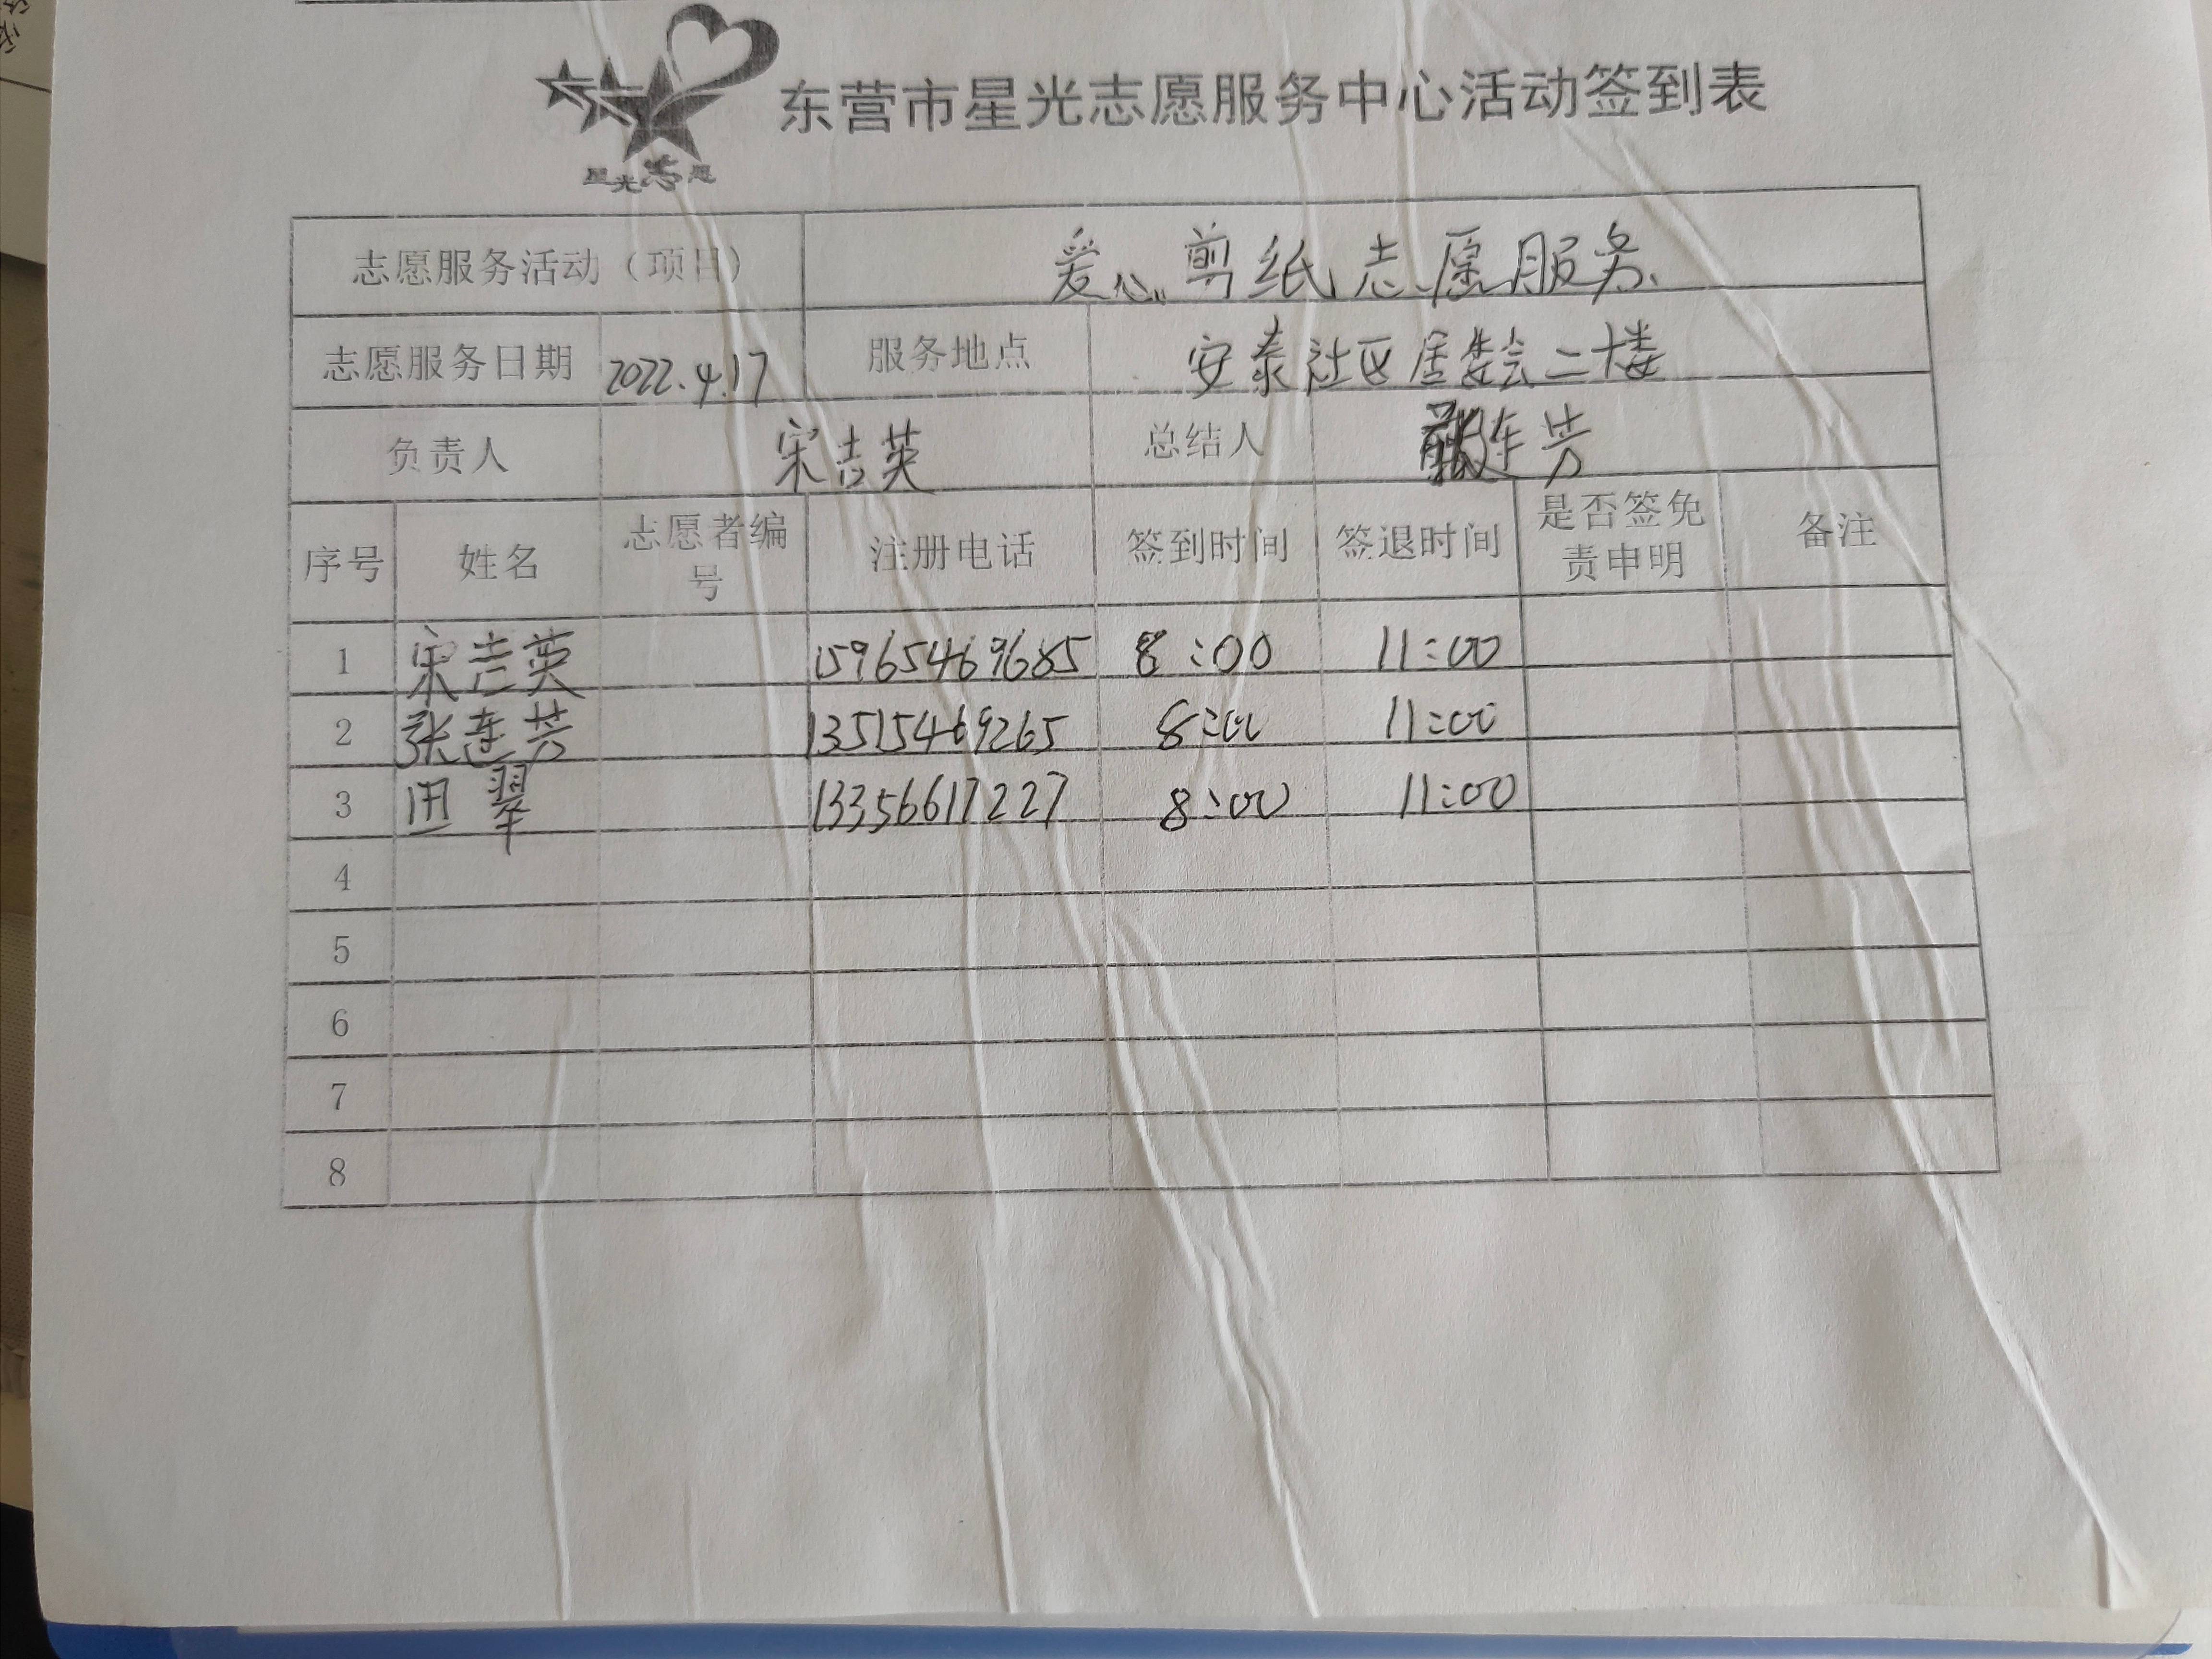 星光志愿
东营市星光志愿服务中心活动签到表
志愿服务活动（项目） 爱心剪纸志愿服务
志愿服务日期 2022.4.17 服务地点 安泰社区居委会二楼
负责人 宋吉英 总结人 张连芳
序号 姓名 志愿者编号 注册电话 签到时间 签退时间 是否签免责申明 备注
1 宋吉英 15965469685 8:00 11:00
2 张连芳 13515469265 8:00 11:00
3 翠 13356617227 8:00 11:00
4
5
6
7
8